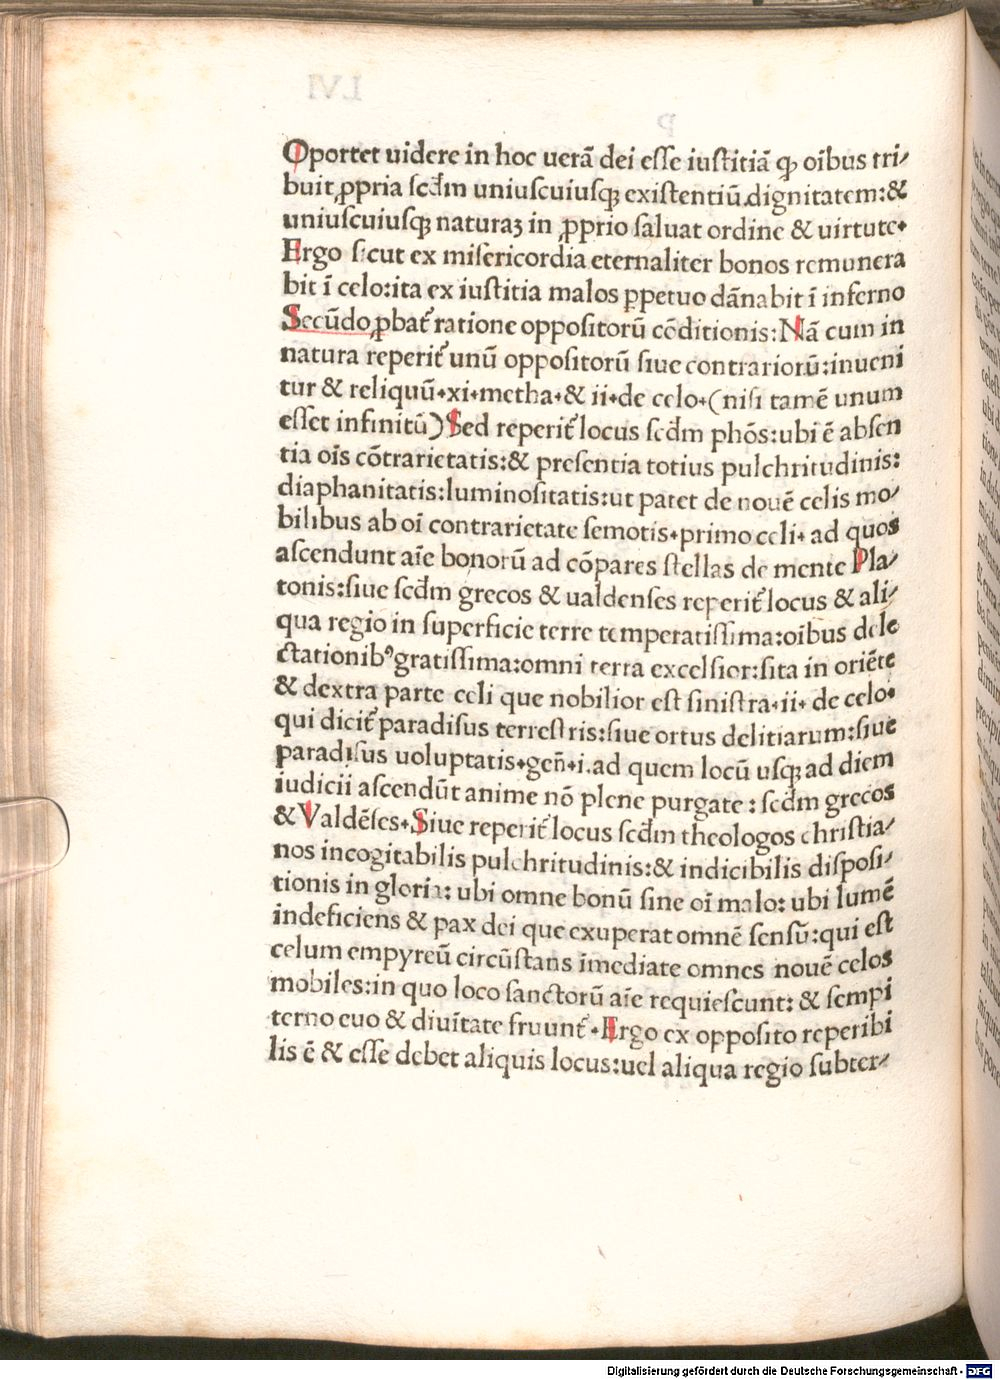 Oportet uidere in hoc uerā dei esse iustitiā ꝙ oībus tri/
buit ꝓpria scd̄m uniuscuiusqꝫ existentiū dignitatem:&
uniuscuiusqꝫ naturaꝫ in ꝓprio saluat ordine & uirtute.
Ergo sicut ex misericordia eternaliter bonos remunera
bit ī celo:ita ex iustitia malos ꝑpetuo dānabit ī inferno
Secūdo ꝓbat᷑ ratione oppositorū cōditionis:Nā cum in
natura reperit᷑ unū oppositorū siue contrariorū:inueni
tur & reliquū.xi.metha.& ii.de celo.(nisi tamē unum
esset infinitū)Sed reperit᷑ locus scd̄m phōs:ubi ē absen
tia oīs cōtrarietatis:& presentia totius pulchritudinis:
diaphanitatis:luminositatis:ut patet de nouē celis mo/
bilibus ab oī contrarietate semotis.primo celi. ad quos
ascendunt aīe bonorū ad cōpares stellas de mente Pla/
tonis:siue scd̄m grecos & ualdenses reperit᷑ locus & ali/
qua regio in superficie terre temperatissima:oībus dele
ctationibꝰ gratissima:omni terra excelsior:sita in oriēte
& dextra parte celi que nobilior est sinistra.ii. de celo.
qui dicit᷑ paradisus terrestris:siue ortus delitiarum:siue
paradisus uoluptatis.gen̄.i.ad quem locū usqꝫ ad diem
iudicii ascendūt anime nō plene purgate : scd̄m grecos
& Valdēses.Siue reperit᷑ locus scd̄m theologos christia/
nos incogitabilis pulchritudinis:& indicibilis disposi/
tionis in gloria: ubi omne bonū sine oī malo: ubi lumē
indeficiens & pax dei que exuperat omnē sensū:qui est
celum empyreū circūstans īmediate omnes nouē celos
mobiles:in quo loco sanctorū aīe requiescunt: & sempi
terno euo & diuītate fruunt᷑ .Ergo ex opposito reperibi
lis ē & esse debet aliquis locus:uel aliqua regio subter/
Digitalisierung gefördert durch die Deutsche Forschungsgemeinschaft - DFG